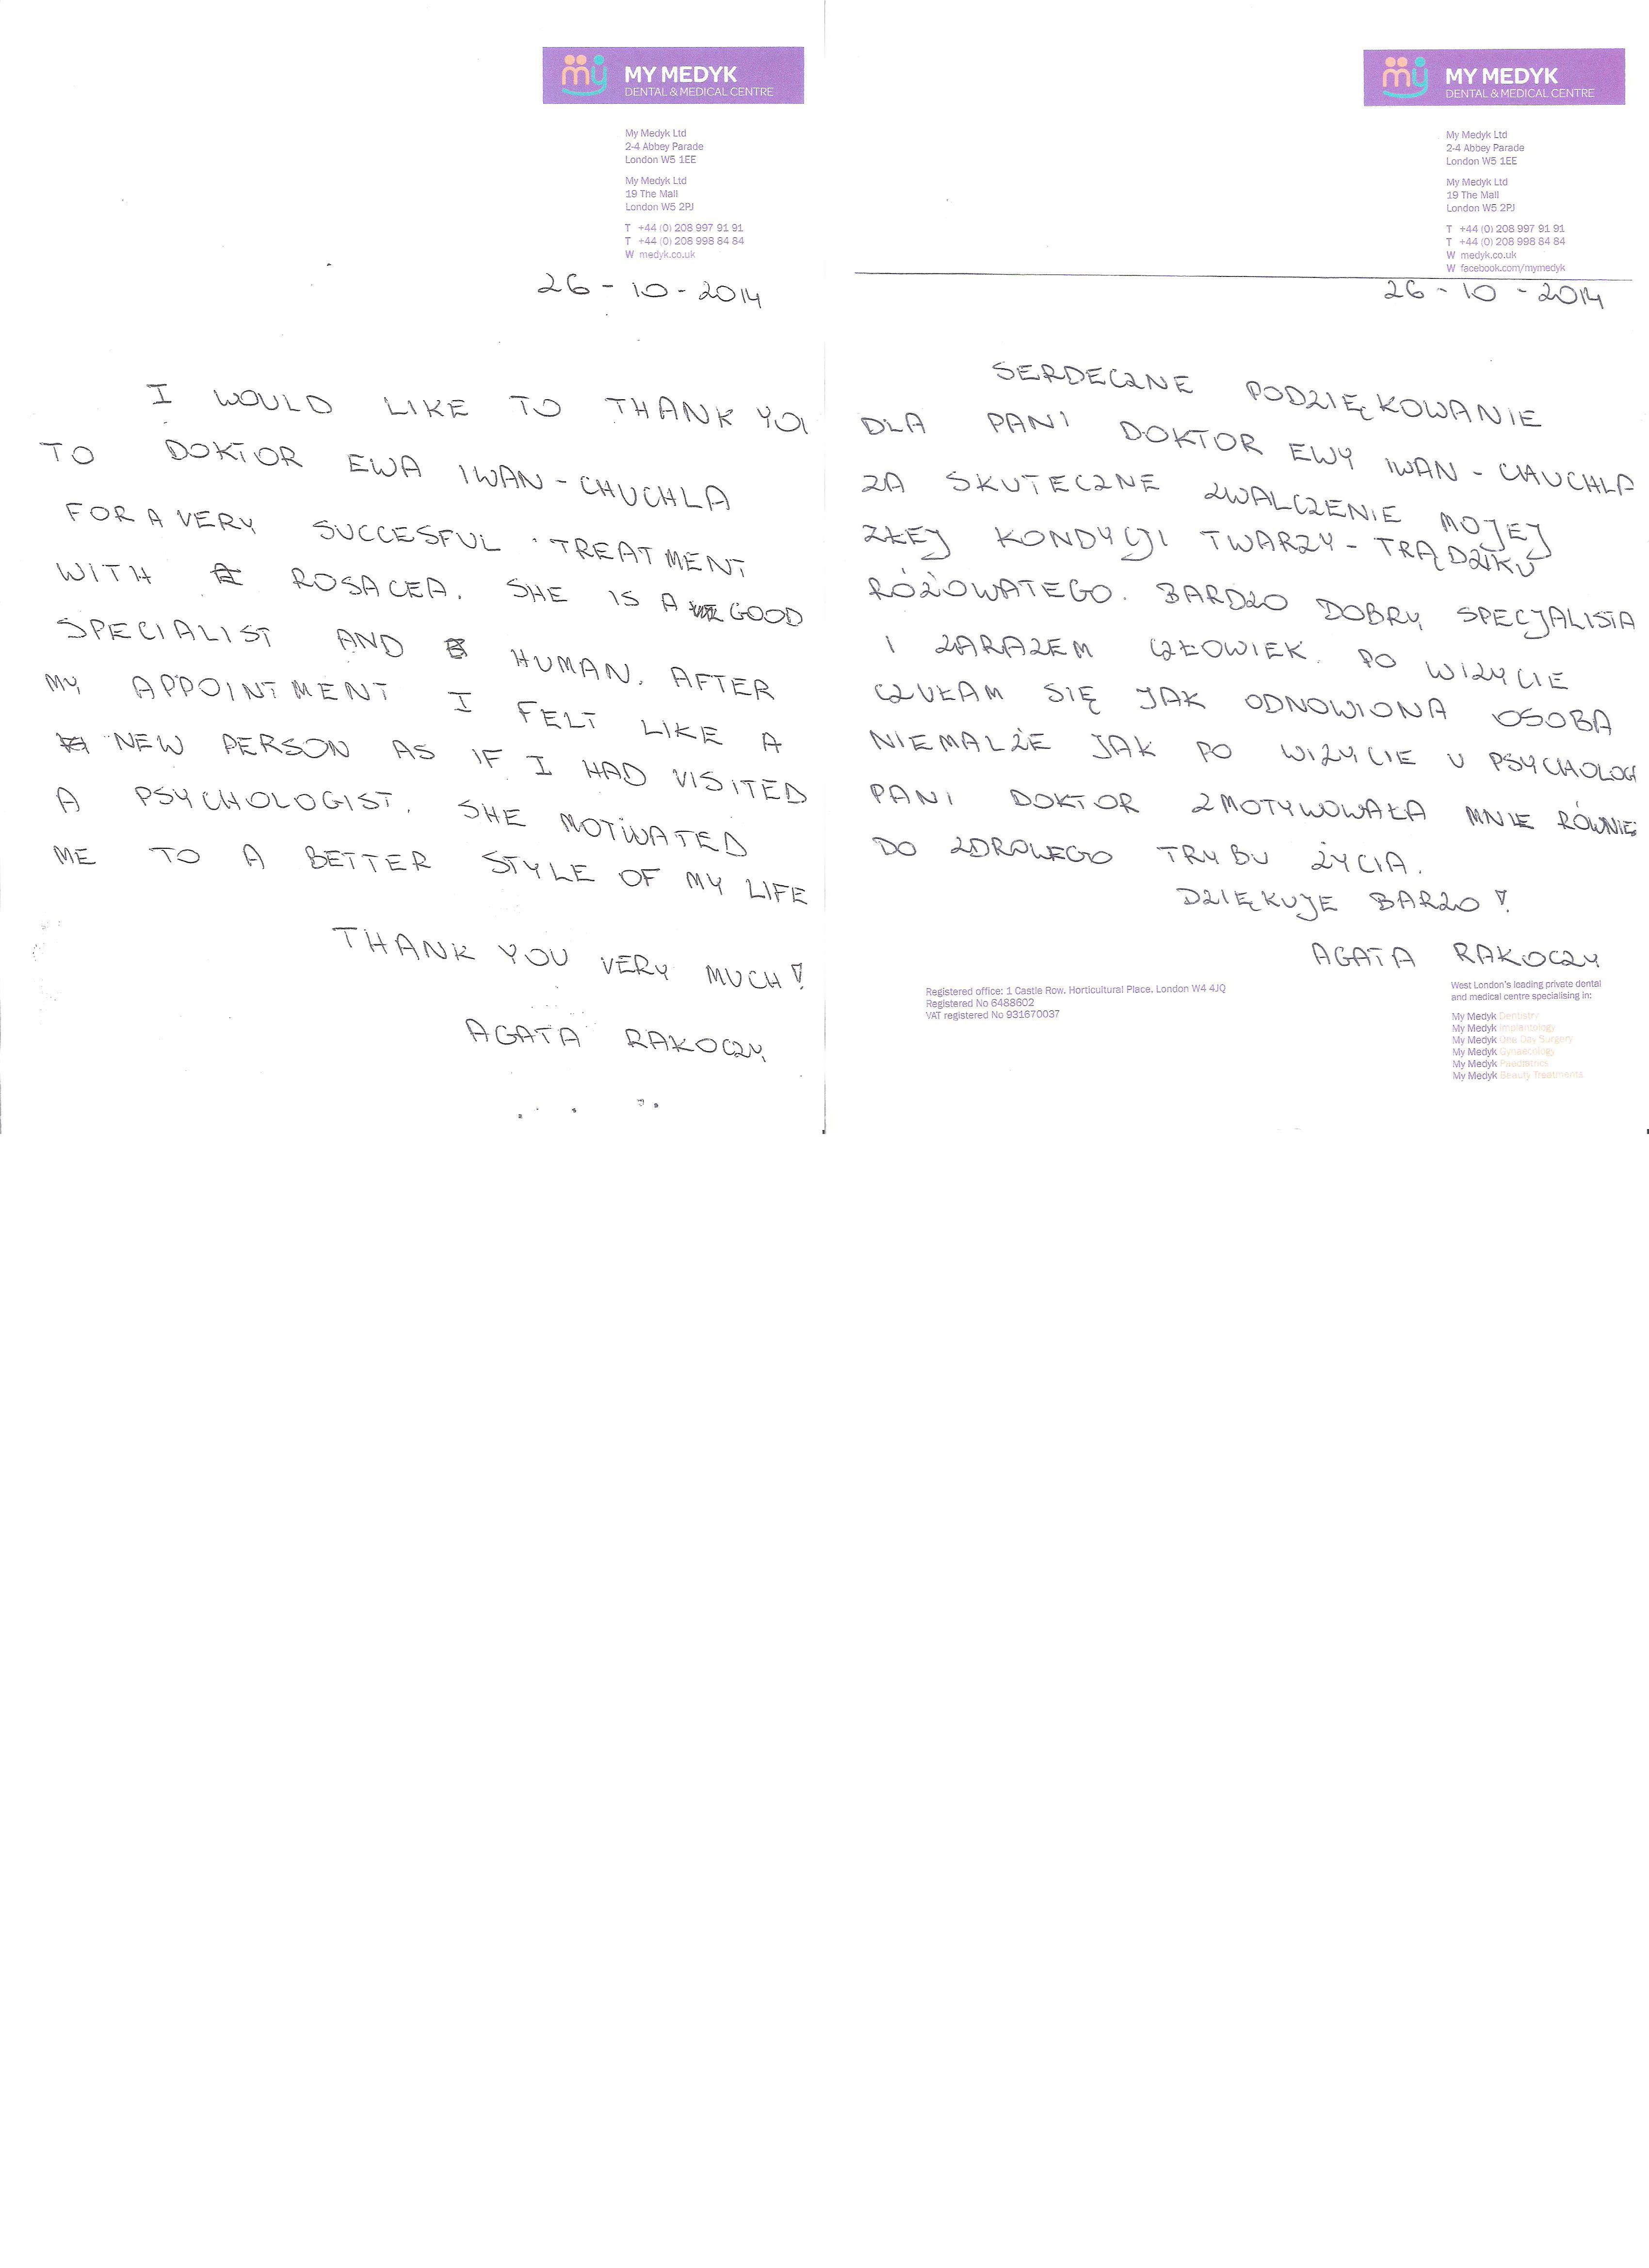 my MY MEDYK
DENTAL & MEDICAL CENTRE
My Medyk Ltd
2-4 Abbey Parade
London W5 1EE
My Medyk Ltd
19 The Mall
London W5 2PJ
T +44 (0) 208 997 91 91
T +44 (0) 208 998 84 84
W medyk.co.uk
26-10-2014
I WOULD LIKE TO THANK YOU
TO DOKTOR EWA IWAN-CHUCHLA
FOR A VERY SUCCESFUL TREATMENT
WITH ROSACEA. SHE IS A GOOD
SPECIALIST AND HUMAN. AFTER
MY APPOINTMENT I FELT LIKE A
NEW PERSON AS IF I HAD VISITED
A PSYCHOLOGIST. SHE MOTIVATED
ME TO A BETTER STYLE OF MY LIFE
THANK YOU VERY MUCH!
AGATA RAKOCZY
my MY MEDYK
DENTAL & MEDICAL CENTRE
My Medyk Ltd
2-4 Abbey Parade
London W5 1EE
My Medyk Ltd
19 The Mall
London W5 2PJ
T +44 (0) 208 997 91 91
T +44 (0) 208 998 84 84
W medyk.co.uk
W facebook.com/mymedyk
26-10-2014
SERDECZNE PODZIĘKOWANIE
DLA PANI DOKTOR EWY IWAN-CHUCHLA
ZA SKUTECZNE ZWALCZENIE MOJEJ
ZŁEJ KONDYCJI TWARZY-TRĄDZIKU
RÓŻOWATEGO. BARDZO DOBRY SPECJALISTA
I ZARAZEM CZŁOWIEK. PO WIZYCIE
CZUŁAM SIĘ JAK ODNOWIONA OSOBA
NIEMALŻE JAK PO WIZYCIE U PSYCHOLOG
PANI DOKTOR ZMOTYWOWAŁA MNIE RÓWNIE
DO ZDROWEGO TRYBU ŻYCIA.
DZIĘKUJE BARZO!
AGATA RAKOCZY
Registered office: 1 Castle Row, Horticultural Place, London W4 4JQ
Registered No 6488602
VAT registered No 931670037
West London's leading private dental
and medical centre specialising in:
My Medyk Dentistry
My Medyk Implentology
My Medyk One Day Surgery
My Medyk Gynaecology
My Medyk Paediatrics
My Medyk Beauty Treatments